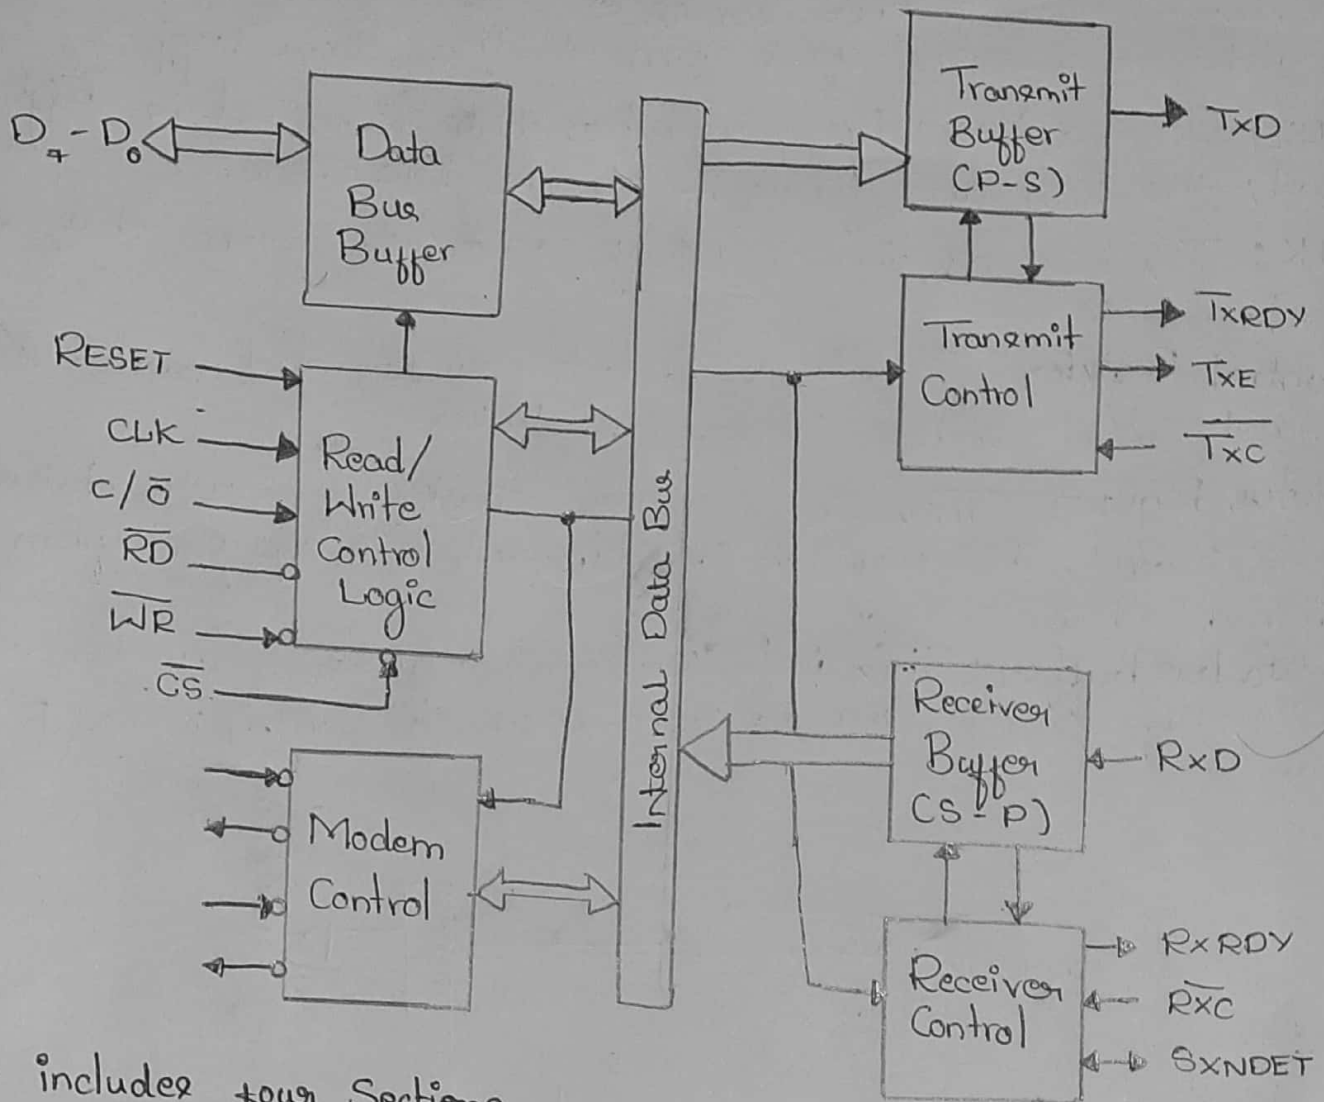 D₇-D₀
Data
Bus
Buffer
RESET
CLK
C/O̅
R̅D̅
W̅R̅
C̅S̅
Read/
Write
Control
Logic
Modem
Control
Internal Data Bus
Transmit
Buffer
(P-S)
TxD
Transmit
Control
TxRDY
TxE
T̅x̅C̅
Receiver
Buffer
(S-P)
RxD
Receiver
Control
RxRDY
R̅x̅C̅
SXNDET
includes four Sections